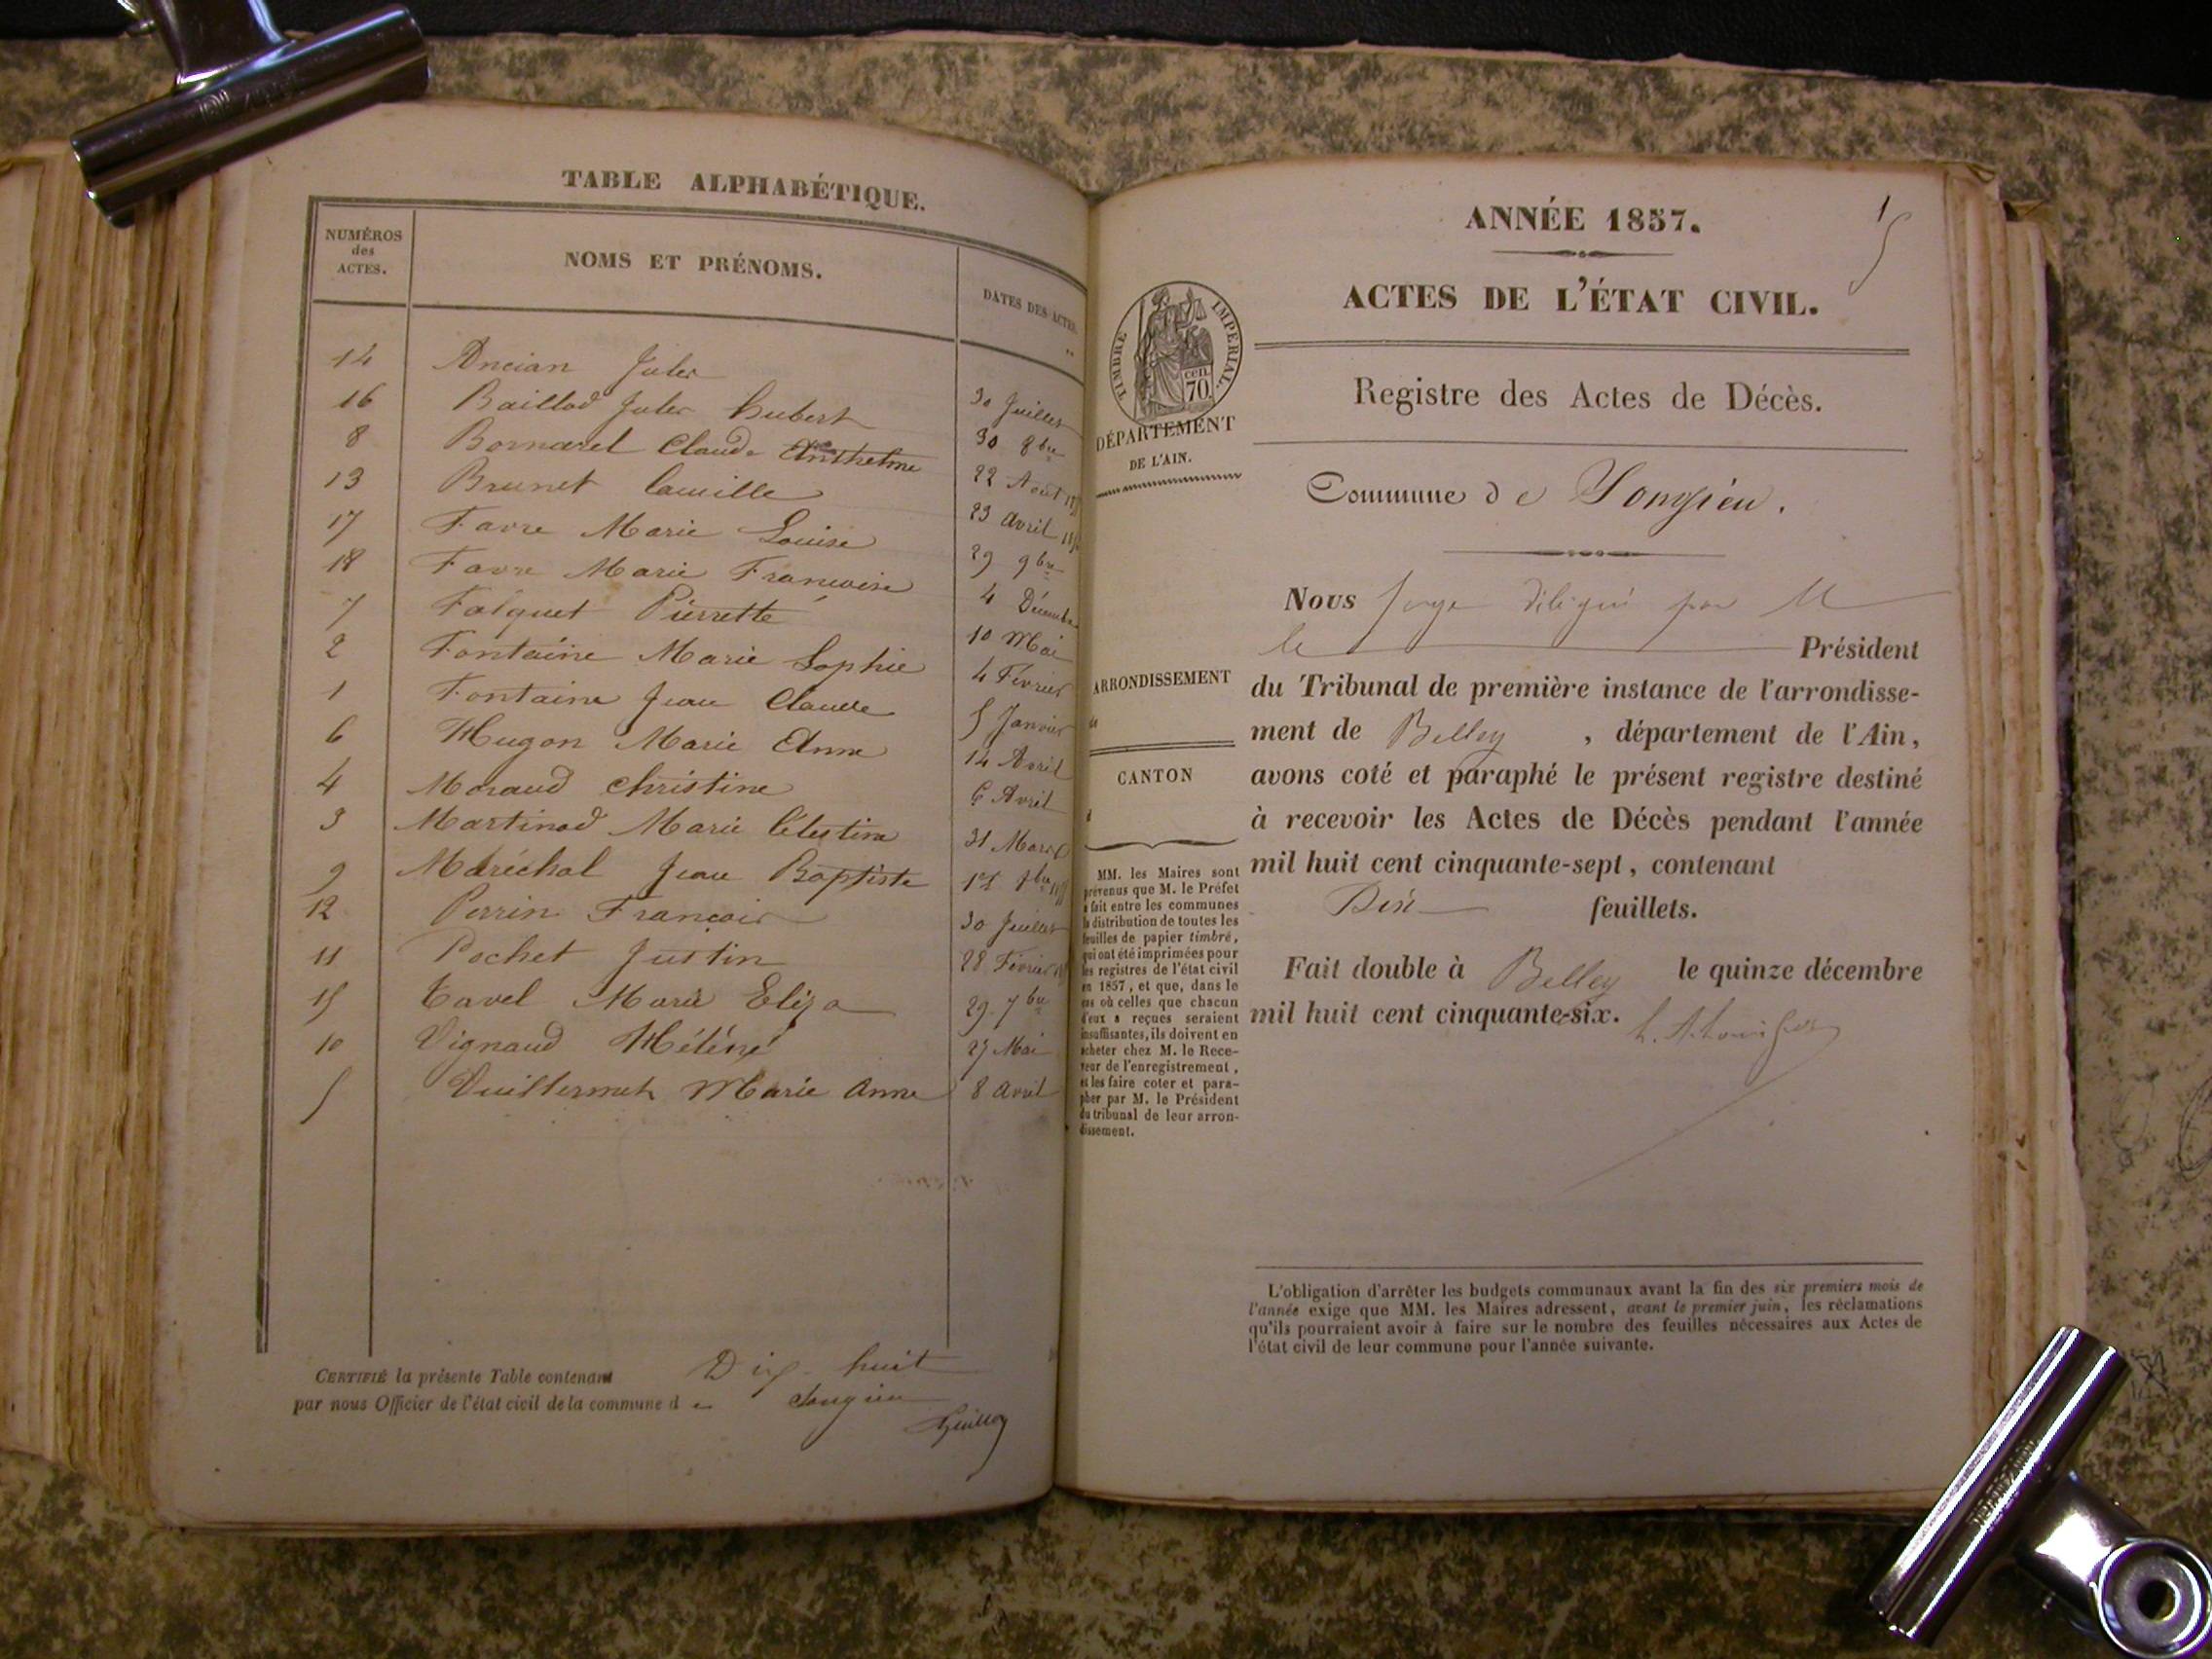 TABLE ALPHABÉTIQUE.
NUMÉROS des ACTES.
NOMS ET PRÉNOMS.
DATES DES ACTES.
14 Ancian Jules 30 Juillet
16 Baillod Jules hubert 30 8bre
8 Bornarel Claude Anthelme 22 Aout
13 Brunet Camille 23 Avril
17 Favre Marie Louise 29 9bre
18 Favre Marie Francoise 4 Décembre
7 Falquet Pierrette 10 Mai
2 Fontaine Marie Sophie 4 Février
1 Fontaine Jean Claude 5 Janvier
6 Hugon Marie Anne 14 Avril
4 Moraud Christine 6 Avril
3 Martinod Marie Célestine 31 Mars
9 Maréchal Jean Baptiste
12 Perrin François 30 Juillet
11 Pochet Justin 28 Février
15 Tavel Marie Eliza 29 7bre
10 Vignaud Hélène 27 Mai
5 Vuillermet Marie Anne 8 Avril
CERTIFIÉ la présente Table contenant Dix-huit
par nous Officier de l'état civil de la commune de Songieu
1
ANNÉE 1857.
ACTES DE L'ÉTAT CIVIL.
TIMBRE IMPERIAL.
cen.
70.
DÉPARTEMENT
DE L'AIN.
Registre des Actes de Décès.
Commune de Songieu.
Nous Juge délégué par M
le Président
ARRONDISSEMENT
du Tribunal de première instance de l'arrondisse-
ment de Belley , département de l'Ain,
CANTON
avons coté et paraphé le présent registre destiné
à recevoir les Actes de Décès pendant l'année
mil huit cent cinquante-sept, contenant
Dix feuillets.
Fait double à Belley le quinze décembre
mil huit cent cinquante-six.
MM. les Maires sont
prévenus que M. le Préfet
a fait entre les communes
la distribution de toutes les
feuilles de papier timbré,
qui ont été imprimées pour
les registres de l'état civil
en 1857, et que, dans le
cas où celles que chacun
d'eux a reçues seraient
insuffisantes, ils doivent en
acheter chez M. le Rece-
veur de l'enregistrement,
et les faire coter et para-
pher par M. le Président
du tribunal de leur arron-
dissement.
L'obligation d'arrêter les budgets communaux avant la fin des six premiers mois de
l'année exige que MM. les Maires adressent, avant le premier juin, les réclamations
qu'ils pourraient avoir à faire sur le nombre des feuilles nécessaires aux Actes de
l'état civil de leur commune pour l'année suivante.